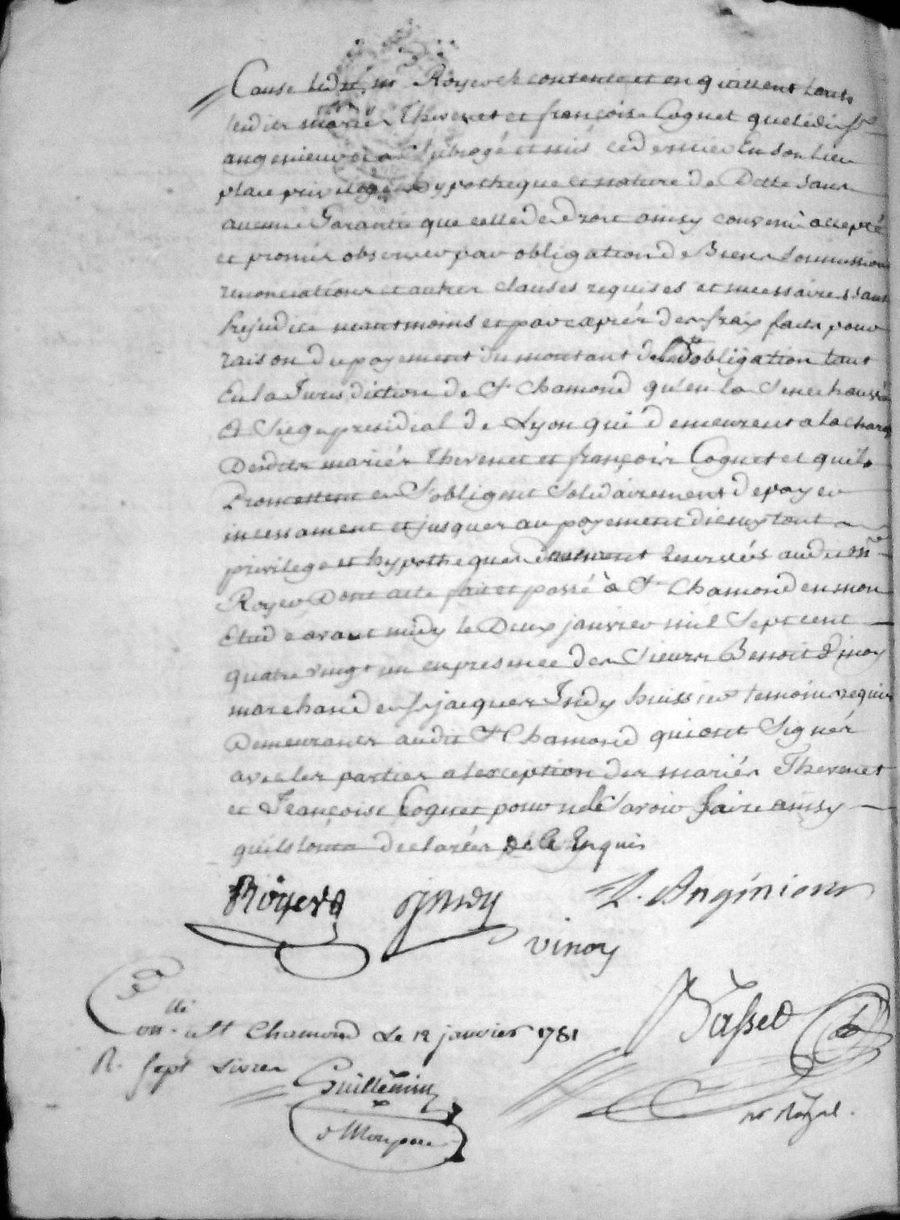 Cause ledit mr Royer et contente et en quittent tant
lesdits mariés Thevenet et françoise Coguet que ledit sr
angenieux a subrogé et mis ce dernier En son lieu
place privilege hypotheque et nature de Dette sans
aucune Garantie que celle de droit ainsy convenu accepté
et promis observer par obligation de Biens soumissions
renonciations et autres clauses requises et necessaires sans
prejudice neantmoins et par exprés des fraix faits pour
raison du payement du montant de lad. obligation tant
En la Jurisdiction de St Chamond qu'en la Senechaussée
& Siege presidial de Lyon qui demeurent a la charge
Desdits mariés Thevenet et françoise Coguet et qu'ils
Promettent et s'obligent solidairement de payer
incessament et jusques au payement d'iceux tout
privilege et hypotheque demeurent reservés audit mr
Royer Dont acte fait et passé à St Chamond en mon
Etude avant midy le Deux janvier mil Sept cent
quatre vingt un en presence des Sieurs Benoit
marchand et sr jacques Indy huissier temoins requis
Demeurants audit St Chamond qui ont Signés
avec les parties a l'exception des mariés Thevenet
et Françoise Coguet pour ne le sçavoir faire ainsy
qu'ils l'ont declarés de ce Enquis
Royer Jindy L. Anginieur
vinoy
Con. llé a St Chamond Le 12 janvier 1781
R. sept Livres
Basset
Guillemin
nre Royal.